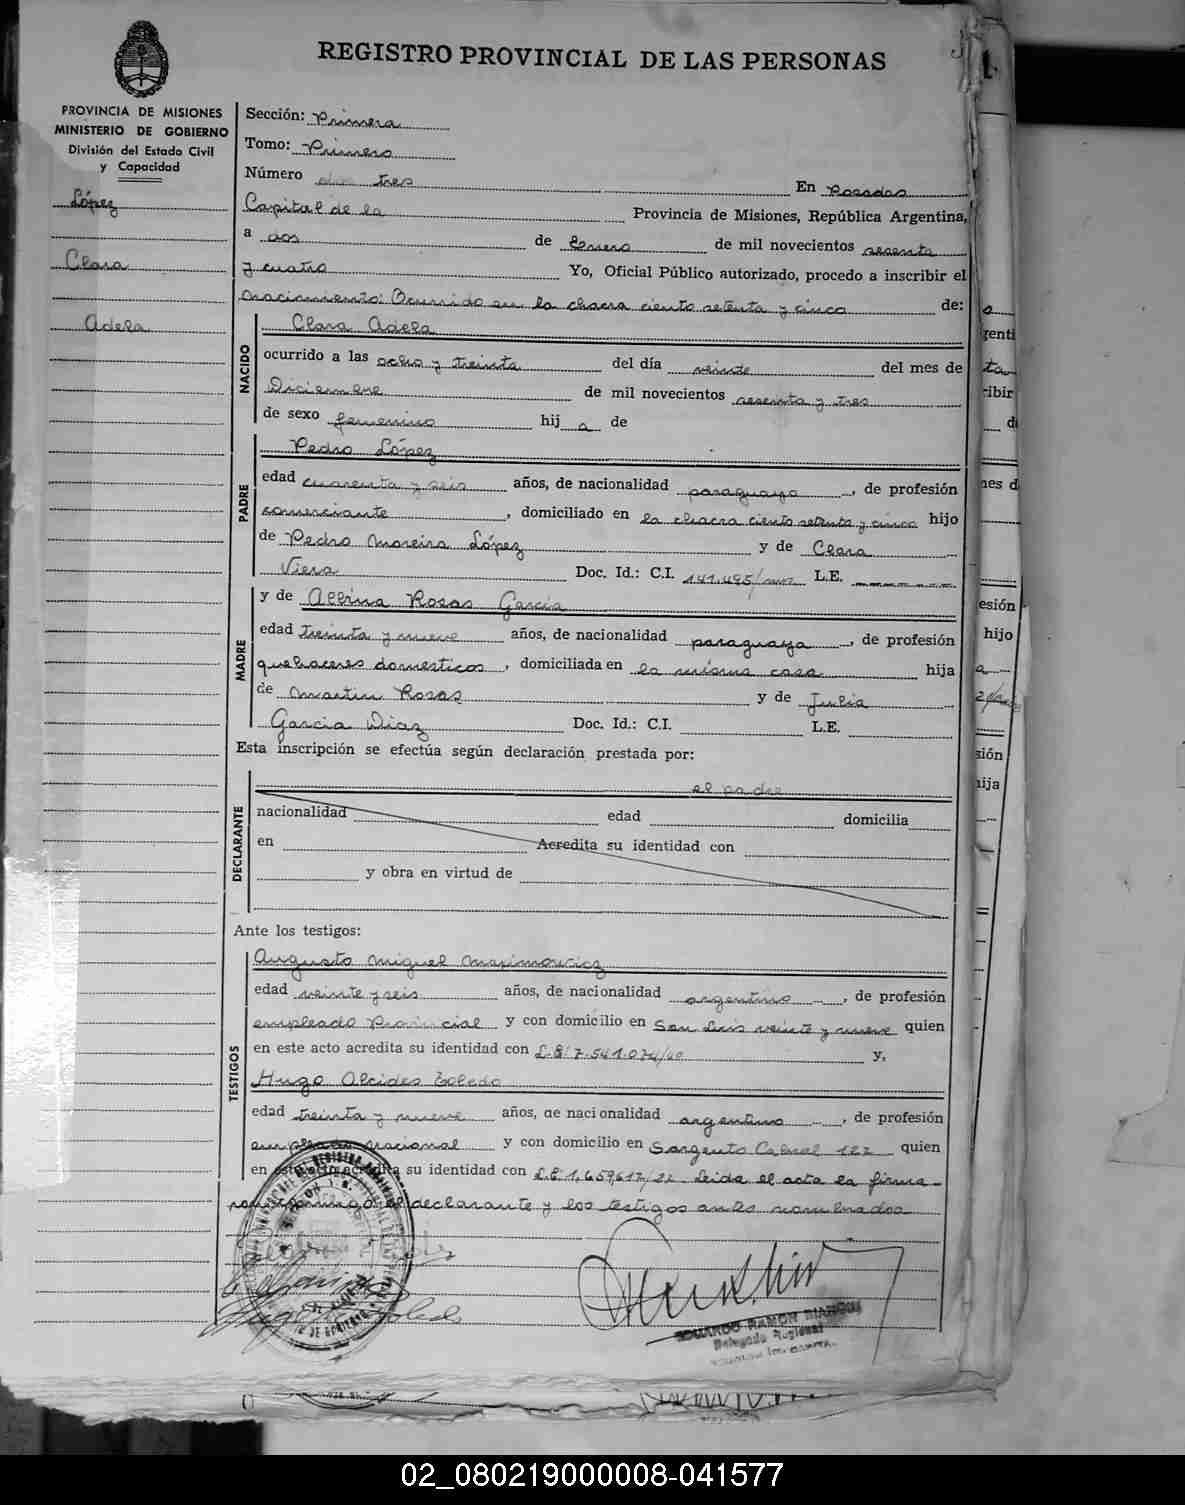 REGISTRO PROVINCIAL DE LAS PERSONAS
PROVINCIA DE MISIONES
MINISTERIO DE GOBIERNO
División del Estado Civil
y Capacidad
López
Clara
Adela
Sección: Primera
Tomo: Primero
Número tres En Posadas
Capital de la Provincia de Misiones, República Argentina,
a dos de Enero de mil novecientos sesenta
y cuatro Yo, Oficial Público autorizado, procedo a inscribir el
nacimiento: Ocurrido en la chacra ciento setenta y cinco de:
NACIDO
Clara Adela
ocurrido a las ocho y treinta del día veinte del mes de
Diciembre de mil novecientos sesenta y tres
de sexo femenino hij a de
PADRE
Pedro López
edad cuarenta y seis años, de nacionalidad paraguayo, de profesión
comerciante, domiciliado en la chacra ciento setenta y cinco hijo
de Pedro Moreira López y de Clara
Viera Doc. Id.: C.I. 141.495/ L.E.
MADRE
y de Albina Rosas García
edad treinta y nueve años, de nacionalidad paraguaya, de profesión
quehaceres domesticos, domiciliada en la misma casa hija
de Martin Rosas y de Julia
Garcia Diaz Doc. Id.: C.I. L.E.
Esta inscripción se efectúa según declaración prestada por:
DECLARANTE
el padre
nacionalidad edad domicilia
en Acredita su identidad con
y obra en virtud de
Ante los testigos:
TESTIGOS
Augusto Miguel Maximowicz
edad veinte y seis años, de nacionalidad argentino, de profesión
empleado Provincial y con domicilio en San Luis veinte y nueve quien
en este acto acredita su identidad con L.E. 7.541.074/60 y,
Hugo Alcides Toledo
edad treinta y nueve años, de nacionalidad argentino, de profesión
empleado nacional y con domicilio en Sargento Cabral 122 quien
en este acto acredita su identidad con L.E. 1,659,617/22 Leida el acta la firma-
ron conmigo el declarante y los testigos antes nombrados
EDUARDO RAMON
Delegado Regional
02_080219000008-041577